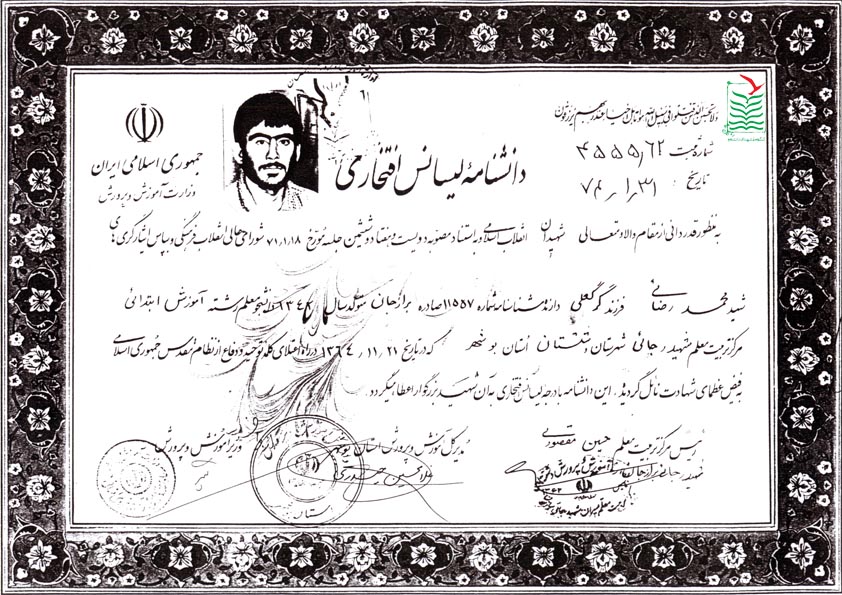 ولا تحسبن الذین قتلوا فی سبیل الله امواتا بل احیاء عند ربهم یرزقون
شماره ثبت ۴۵۵۵٫۶۲
تاریخ : ۷۴٫۱٫۳۱
جمهوری اسلامی ایران
وزارت آموزش و پرورش
دانشنامهٔ لیسانس افتخاری
به منظور قدردانی از مقام والا و متعالی شهیدان انقلاب اسلامی و به استناد مصوبه دویست و هفتاد و ششمین جلسه مورخ ۷۱٫۱٫۱۸ شورای عالی انقلاب فرهنگی و بپاس ایثارگری های
شهید محمد رضائی فرزند گرگعلی دارنده شناسنامه شماره ۱۱۵۵۷ صادره برازجان متولد سال ۱۳۴۲ دانشجو معلم رشته آموزش ابتدائی
مرکز تربیت معلم شهید رجائی شهرستان دشتستان استان بوشهر که در تاریخ ۲۱٫۱۱٫۱۳۶۴ در راه اعتلای کلمه توحید و دفاع از نظام مقدس جمهوری اسلامی
به فیض عظمای شهادت نائل گردیده، این دانشنامه با درجه لیسانس افتخاری به آن شهید بزرگوار اعطا میگردد.
رئیس مرکز تربیت معلم حسین مقصودی
شهید رجائی برازجان
مدیر کل آموزش و پرورش استان بوشهر
غلامحسین حیدری
وزیر آموزش و پرورش